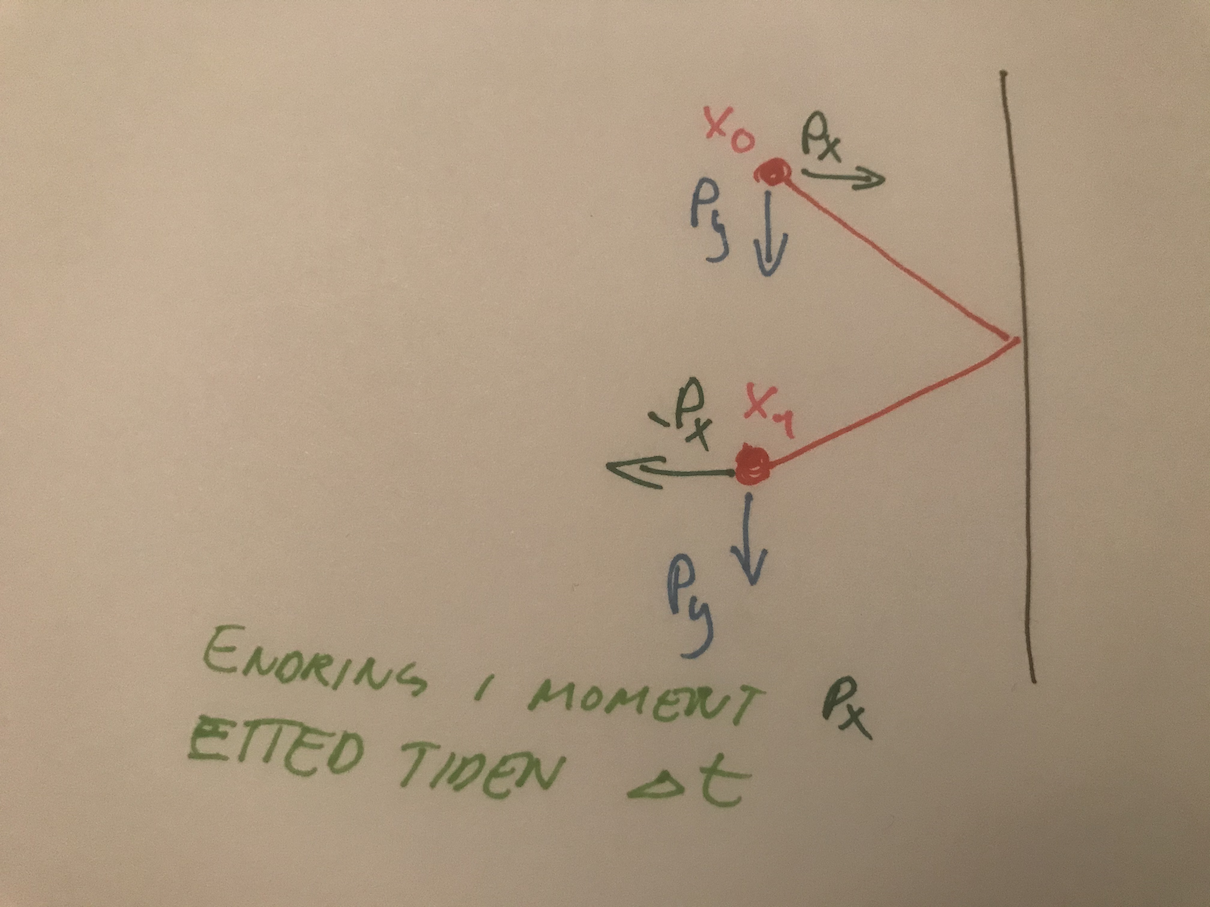 X0 Px
Py
-Px X1
Py
ENDRING I MOMENT Px
ETTED TIDEN Δt